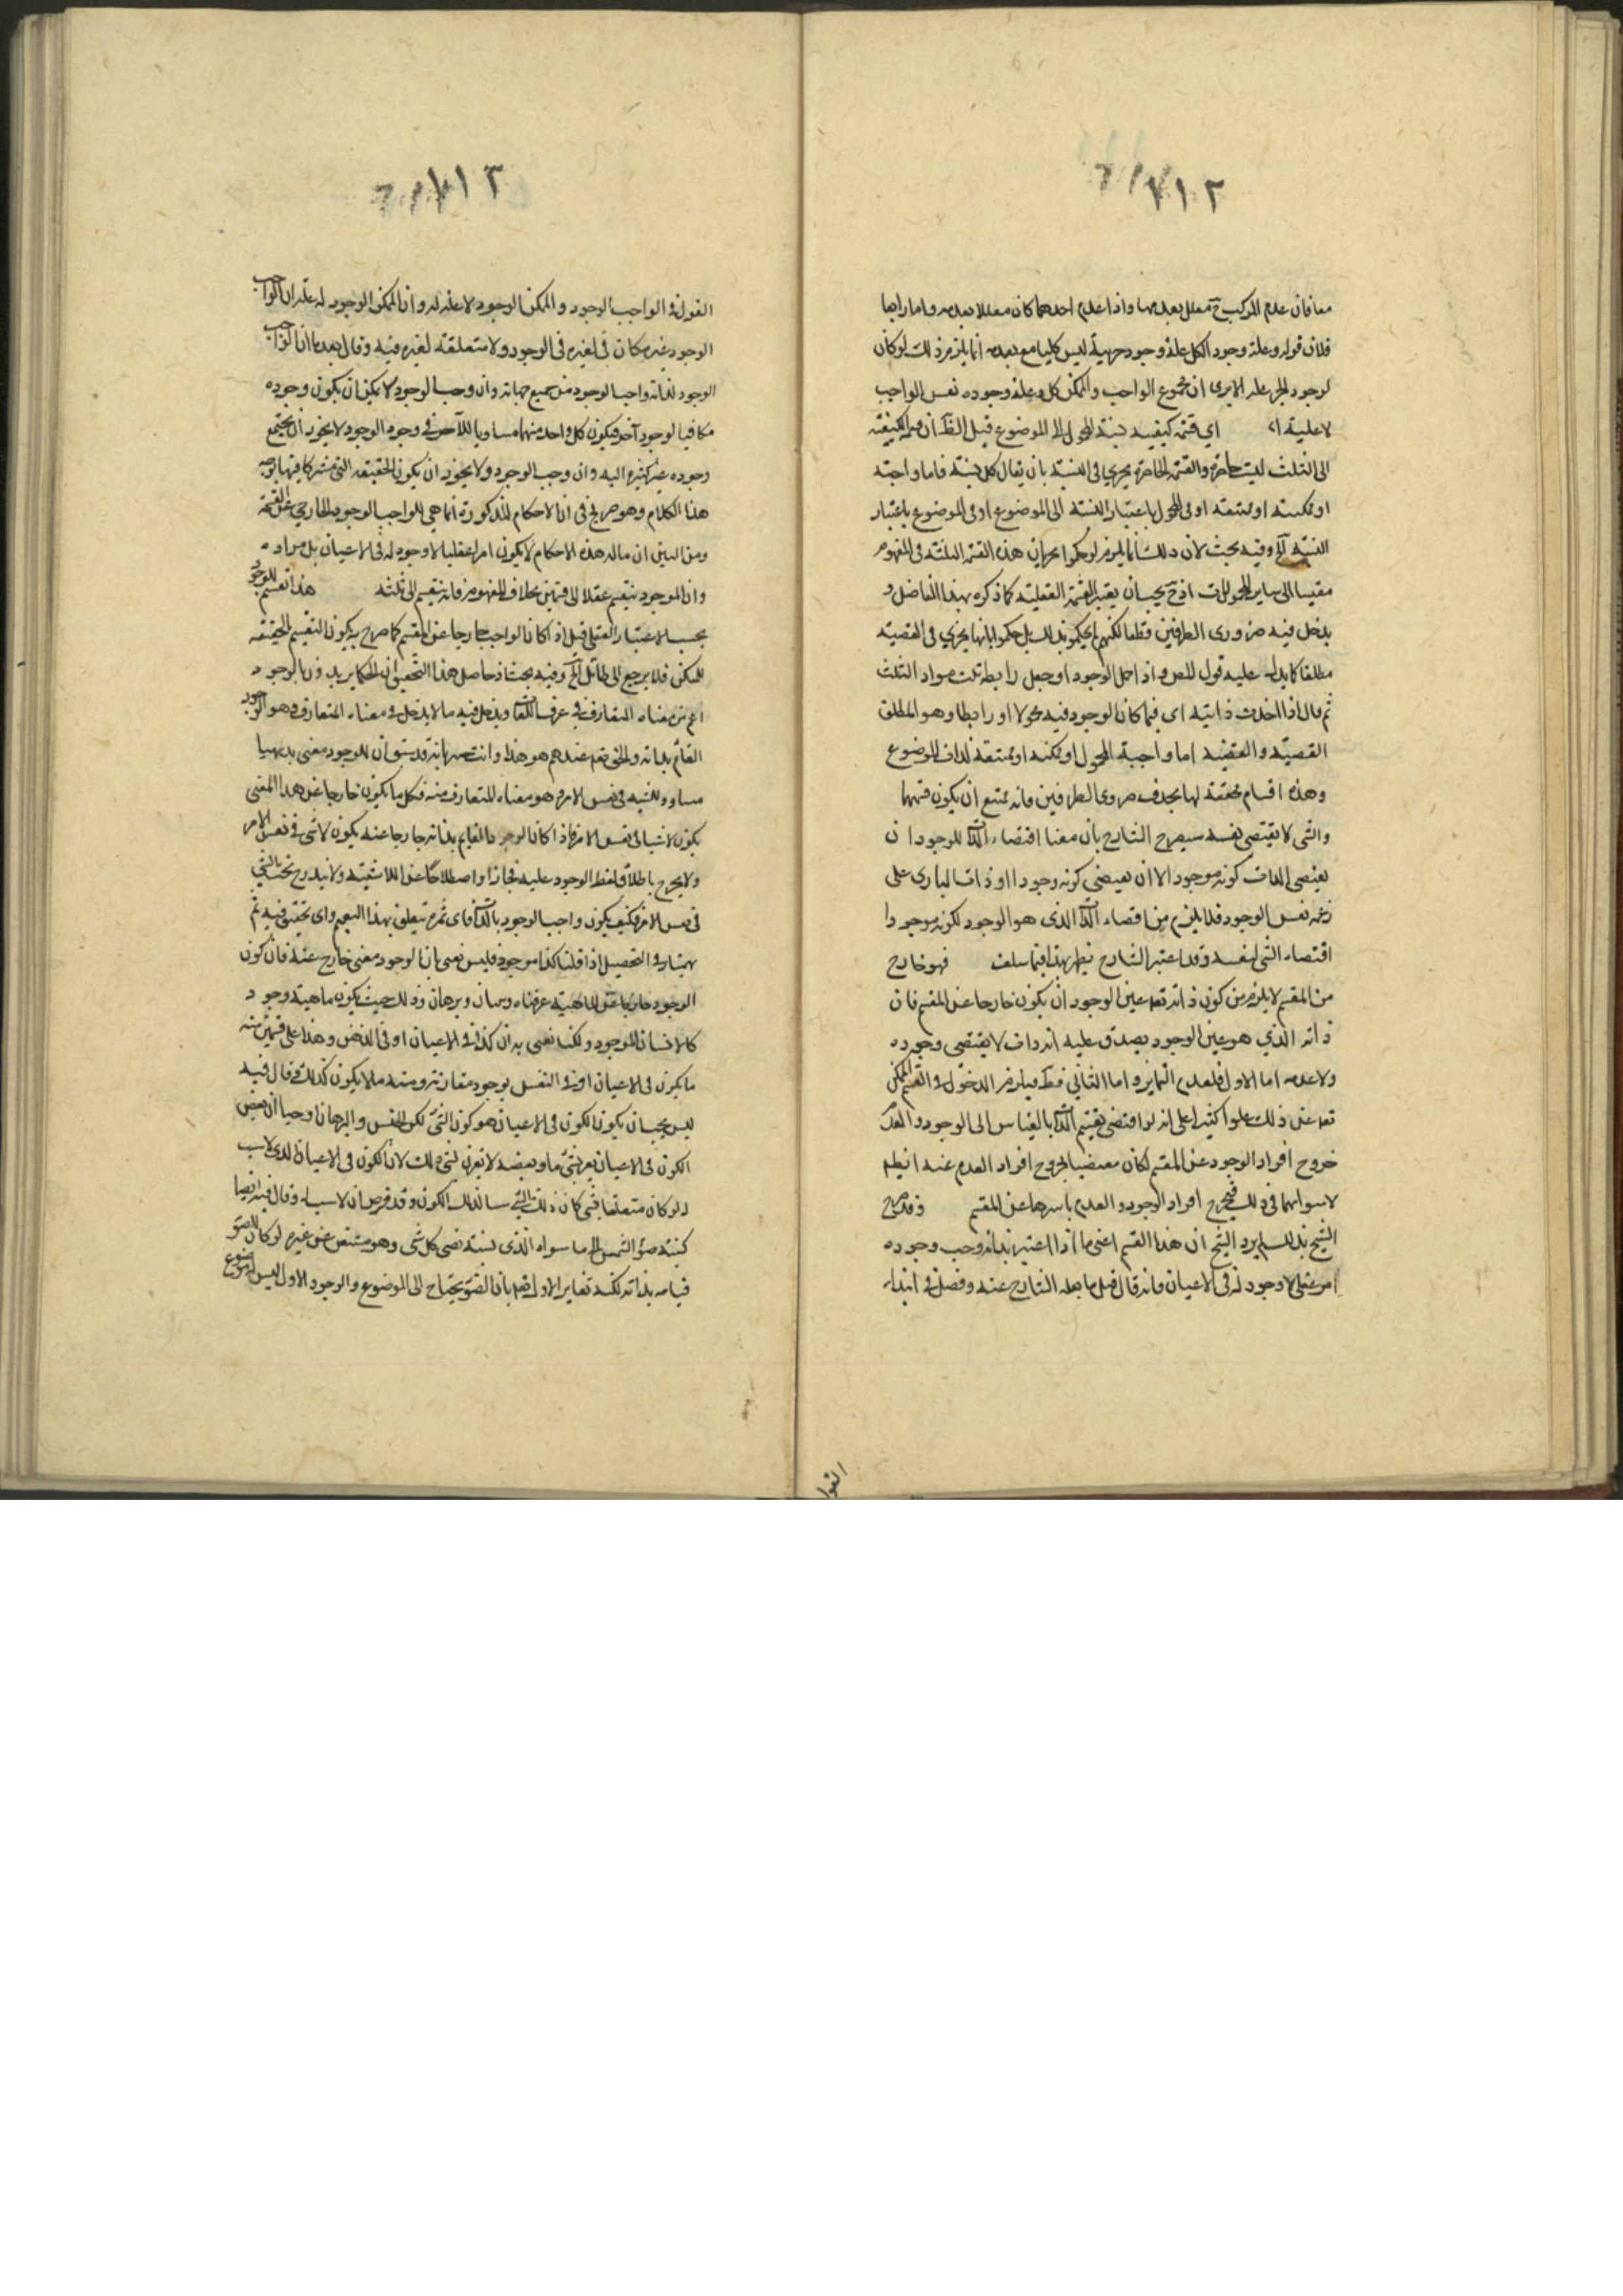 ٢١٧١٢
معا فان عدم المركب ح معلل بعدمها واذا عدم احدهما كان معللا بعدمه واما رابعا
فلان قوله وعلة وجود الكل علة وجود جزئية ليس كليا مع بعده انما يلزم ذلك لو كان
لوجود الجزء علة الا يرى ان مجموع الواجب والممكن كل وعلة وجوده نفس الواجب
اي قسمة كيفية نسبة المحمول الى الموضوع قيل الظ ان
الى الثلث ليست حاصرة والقسمة الحاصرة يجرى في النسبة بان يقال كل نسبة فاما واجبة
او ممكنة او ممتنعة او في المحمول باعتبار النسبة الى الموضوع او في الموضوع باعتبار
النسبة الخ وفيه بحث لان ذلك انما يلزم لو حكموا بجريان هذه القسمة الثلثة في المفهوم
مقيسا الى ساير المحمولات اذ ح يجب ان يعتبر القسمة العقلية كما ذكره هذا الفاضل و
يدخل فيه ضرورى الطرفين قطعا لكنهم لم يحكموا بذلك بل حكموا بانها يجرى في القضية
مطلقا كما يدل عليه قول المص واذا حمل الوجود او جعل رابطة تثبت مواد الثلث
ثم قال اذا اخذت ذاتية اى فيما كان الوجود فيه محمولا او رابطا وهو المطلق
القضية والقضية اما واجبة المحمول او ممكنة او ممتنعة لذات الموضوع
وهذه اقسام محققة لها بحذف ضرورى الطرفين فانه يمتنع ان يكون قسما
والشى لا يقتضى نفسه سيصرح الشارح بان معنا اقتضاء الذات للوجود ان
يقتضى الذات كونه موجودا لا ان يقتضى كونه وجودا او ذات البارى على
زعمه نفس الوجود فلا يلزم من اقتضاء الذات الذى هو الوجود لكونه موجودا
اقتضاء الشى لنفسه وقد اعتبر الشارح نظير هذا فيما سلف فهو خارج
من المقسم لا يلزم من كون ذاته تعه عين الوجود ان يكون خارجا عن المقسم فان
ذاته الذي هو عين الوجود يصدق عليه انه ذات لا يقتضى وجوده
ولا عدمه اما الاول فلعدم التماير واما الثاني فظ فيلزم الدخول في القسم الممكن
تعه عن ذلك علوا كثيرا على انه لو اقتضى تقسيم الذات بالقياس الى الوجود والعدم
خروج افراد الوجود عن المقسم لكان مقتضيا لخروج افراد العدم عنه ايضا
لاستوائهما في ذلك فيخرج افراد الوجود والعدم باسرها عن المقسم وقد صرح
الشيخ بذلك لم يرد الشيخ ان هذا القسم اعنى ما اذا اعتبر بذاته وجب وجوده
امر عقلى لا وجود له في الاعيان فانه قال قبل ما نقله الشارح عنه وفصل في ابتداء
القوا
٢١٧١٣
القول في الواجب الوجود والممكن الوجود لا علة له وان الممكن الوجود له علة ان الواجب
الوجود غير مكان في لغيره في الوجود ولا متعلقة لغيره فيه وقال بعدها ان الواجب
الوجود لذاته واجب الوجود من جميع جهاته وان وجب الوجود لا يمكن ان يكون وجوده
مكافيا لوجود آخر فيكون كل واحد منهما مساويا للآخر في وجوب الوجود لا يجوز ان يجتمع
وجوده عن كثرة البتة وان وجب الوجود ولا يجوز ان يكون الحقيقة التى
هذا الكلام وهو صريح في ان الاحكام المذكورة انما هى للواجب الوجود الخارجي
ومن البين ان ماله هذه الاحكام لا يكون امرا عقليا لا وجود له في الاعيان بل مراده
وان الموجود ينقسم عقلا الى قسمين بخلاف المفهوم فانه ينقسم الى ثلثة هذا تقسيم للوجود
بحسب الاعتبار العقلى قيل اذا كان الواجب خارجا عن المقسم كما صرح به يكون التقسيم الحقيقه
للممكن فلا يرجع الى طائل الخ وفيه بحث اذ حاصل هذا التحقيق ان الحكما يريدون بالوجود
اعم من معناه المتعارف في عرف اللغة ويدخل فيه ما لا يدخل في معناه المتعارف وهو الوجود
القائم بذاته والحق تعه عندهم هو هذا وانت خبير بانه قد سبق ان للوجود معنى بديهيا
مساوو للشيئية في نفس الامر وهو معناه المتعارف منه فكل ما يكون خارجا عن هذا المعنى
يكون لا شيئا في نفس الامر فاذا كان الوجود القايم بذاته خارجا عنه يكون لا شى في نفس الامر
ولا يخرج باطلاق لفظ الوجود عليه مجازا واصطلاحا عن اللاشيئية ولا يندرج تحت الشى
في نفس الامر فكيف يكون واجب الوجود بالذات فاى ثمرة يتعلق بهذا التعميم واى تحقيق فيه ثم
بهمنيار في التحصيل اذا قلنا كذا موجود فليس نعنى به ان الوجود معنى خارج عنه فان كون
الوجود خارجا عن الماهية عرفناه ببيان وبرهان وذلك حيث يكون ماهية وجود
كالانسان الموجود ولكنا نعنى به ان كذا في الاعيان او في الذهن وهذا على قسمين منه
ما يكون في الاعيان او في النفس بوجود مقارنه ومنه ما لا يكون كذلك وقال فيه
ليس يجب ان يكون الكون في الاعيان هو كون الشى لكن الحس والبرهان اوجبا ان بعض
الكون في الاعيان يقترن بشى ما وبعضه لا يقترن بشى وذلك لان الكون في الاعيان الذى لا سبب
له لو كان متعلقا بشى كان ذلك الشى سببا لذلك الكون وقد فرض ان لا سبب له وقال فيه ايضا
كنسبة ضوء الشمس الى ما سواه الذى بسببه يضى كل شى وهو مستغن عن غيره لو كان للضوء
قيام بذاته لكنه تفاير الاول تعه بان الضوء يحتاج الى الموضوع والوجود الاول ليس له موضوع